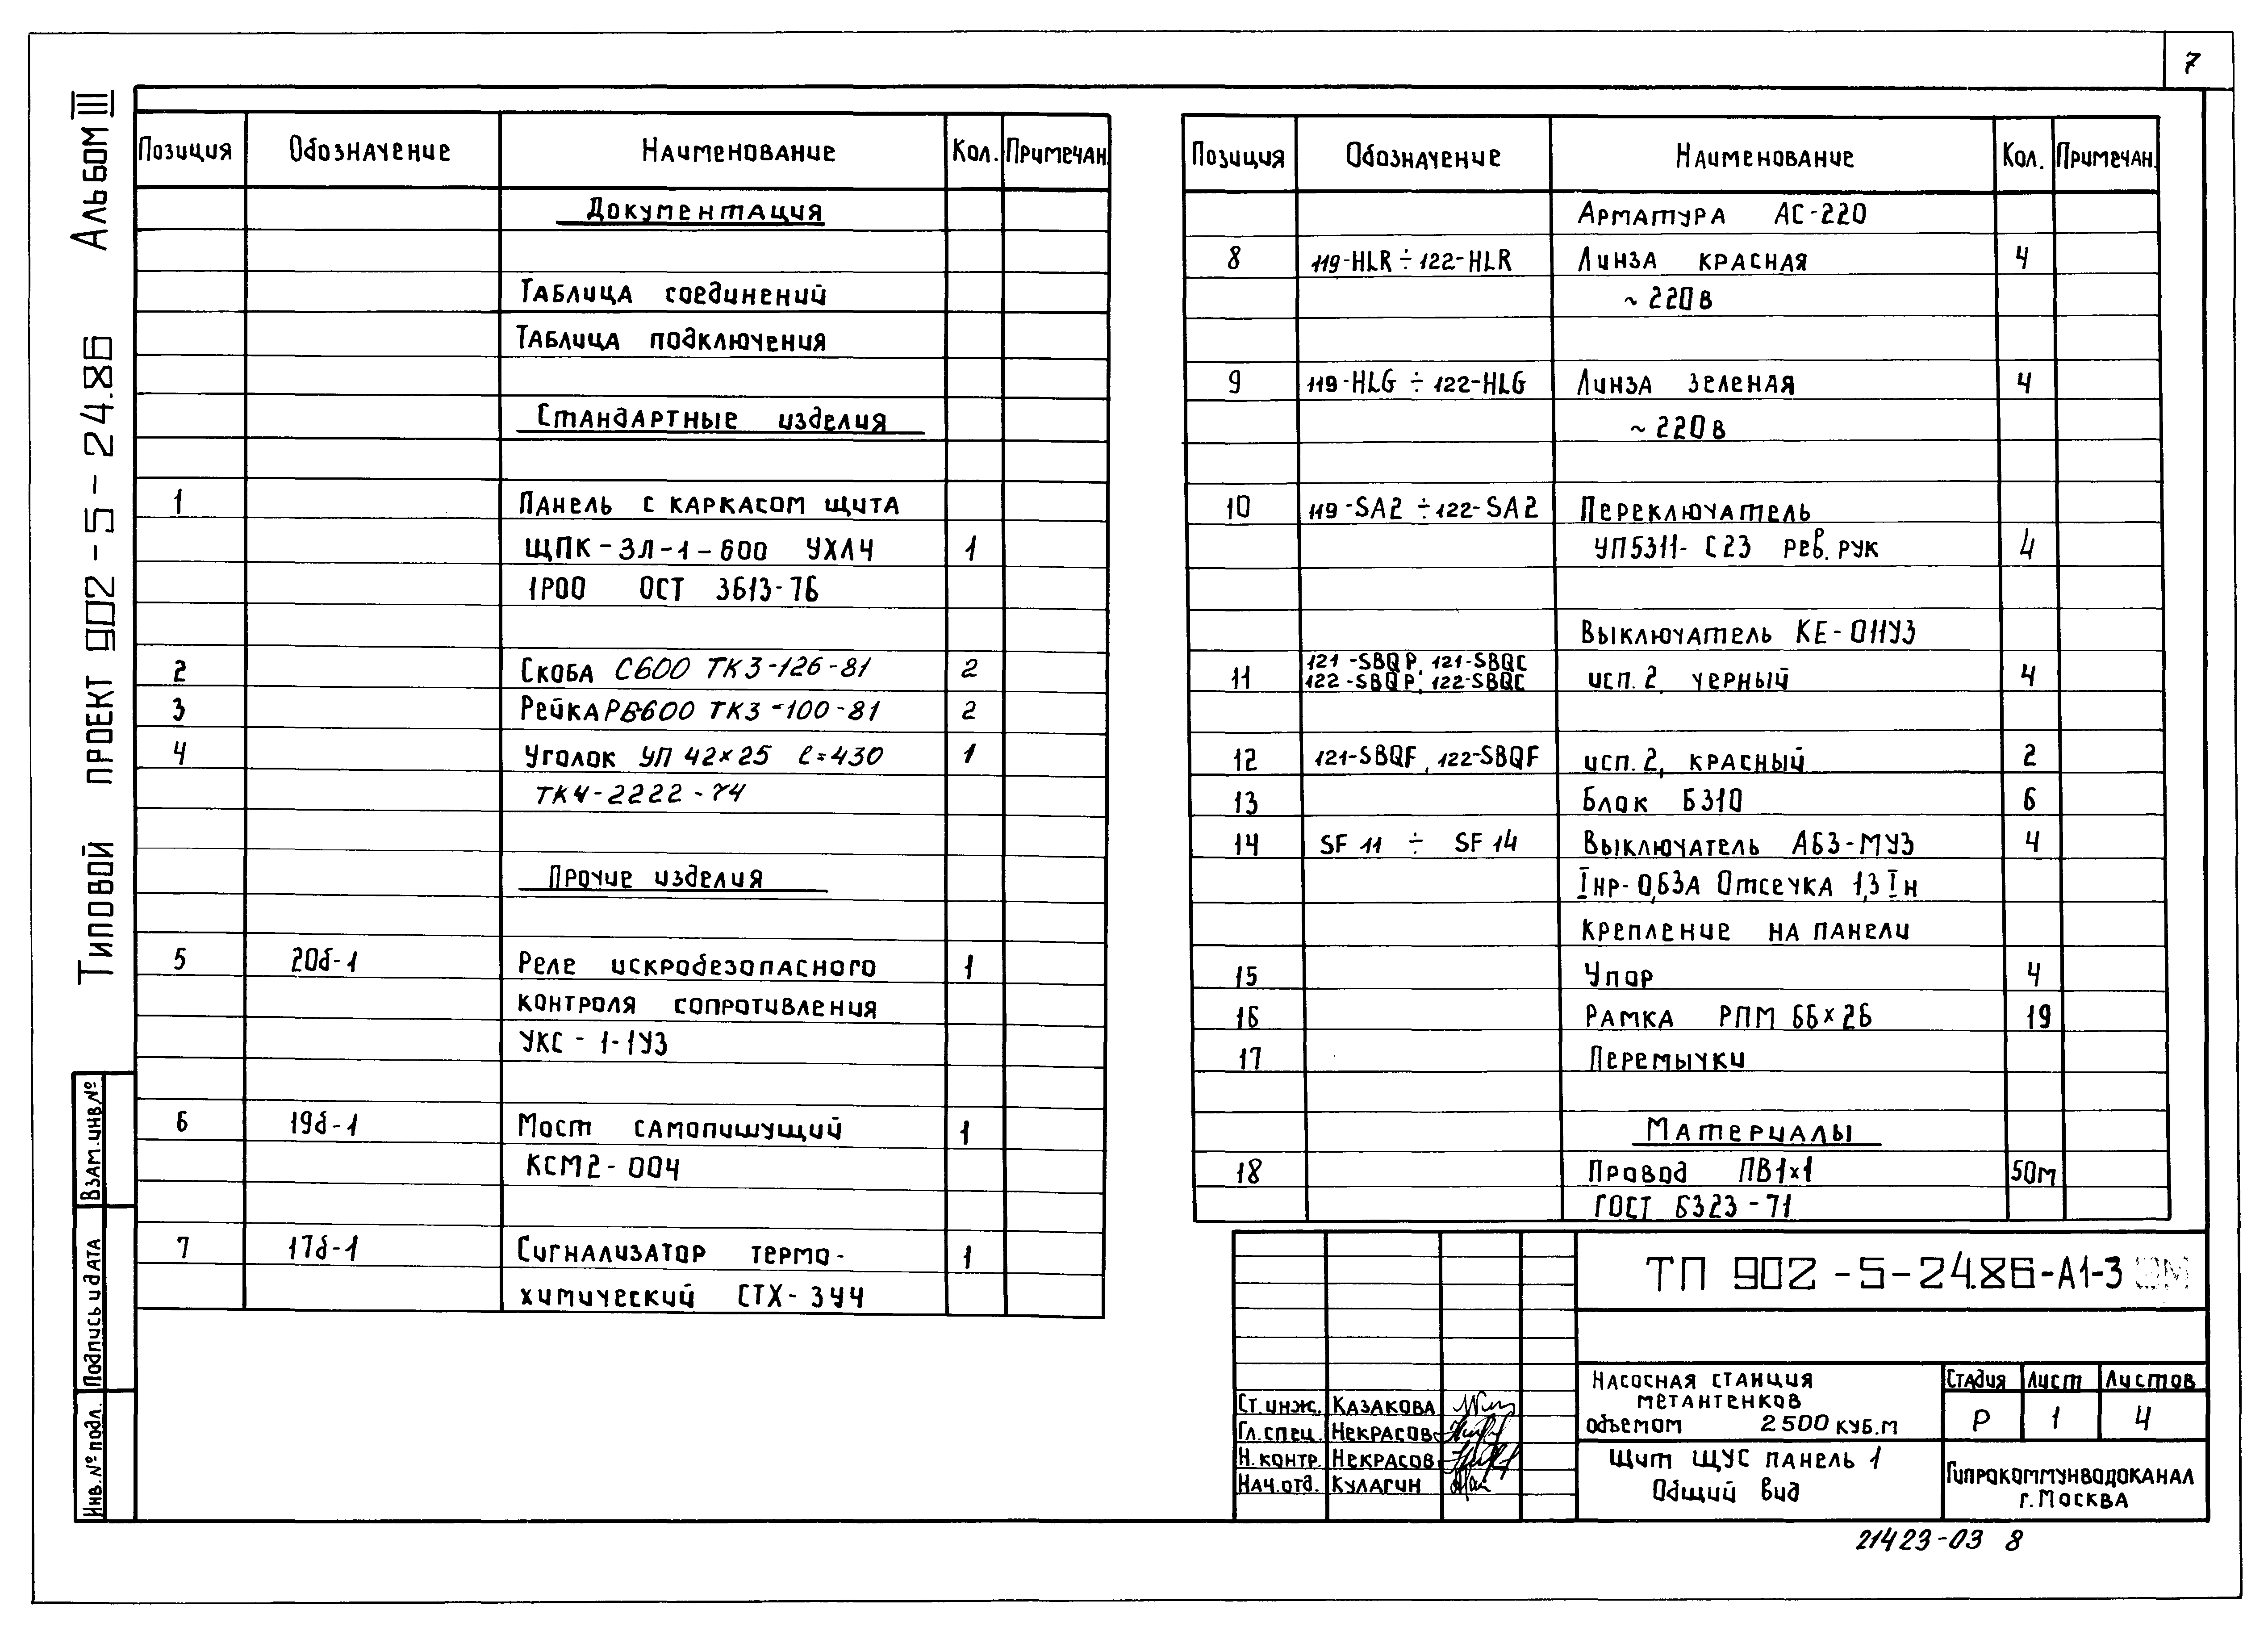 7
Типовой проект 902-5-24.86 Альбом III
Позиция Обозначение Наименование Кол. Примечан.
Документация
Таблица соединений
Таблица подключения
Стандартные изделия
1 Панель с каркасом щита
ЩПК-ЗЛ-1-600 УХЛ4 1
1Р00 ОСТ 3613-76
2 Скоба С600 ТК3-126-81 2
3 Рейка РВ600 ТК3-100-81 2
4 Уголок УП 42×25 ℓ=430 1
ТК4-2222-74
Прочие изделия
5 20б-1 Реле искробезопасного 1
контроля сопротивления
УКС-1-1У3
6 19б-1 Мост самопишущий 1
КСМ2-004
7 17б-1 Сигнализатор термо- 1
химический СТХ-3У4
Позиция Обозначение Наименование Кол. Примечан.
Арматура АС-220
8 119-HLR÷122-HLR Линза красная 4
~220в
9 119-HLG÷122-HLG Линза зеленая 4
~220в
10 119-SA2÷122-SA2 Переключатель
УП5311-С23 рев. рук 4
Выключатель КЕ-011У3
121-SBQP, 121-SBQC
11 122-SBQP, 122-SBQC исп. 2, черный 4
12 121-SBQF, 122-SBQF исп. 2, красный 2
13 Блок Б310 6
14 SF 11 ÷ SF 14 Выключатель А63-МУ3 4
Iнр-0,63А Отсечка 1,3 Iн
крепление на панели
15 Упор 4
16 Рамка РПМ 66×26 19
17 Перемычки
Материалы
18 Провод ПВ1×1 50м
ГОСТ 6323-71
Взам. инв. №
Подпись и дата
Инв. № подл.
ТП 902-5-24.86-А1-3
Ст. инж. Казакова
Гл. спец. Некрасов
Н. контр. Некрасов
Нач. отд. Кулагин
Насосная станция
метантенков
объемом 2500 куб.м
Стадия Лист Листов
Р 1 4
Щит ЩУС панель 1
Общий вид
Гипрокоммунводоканал
г. Москва
21423-03 8